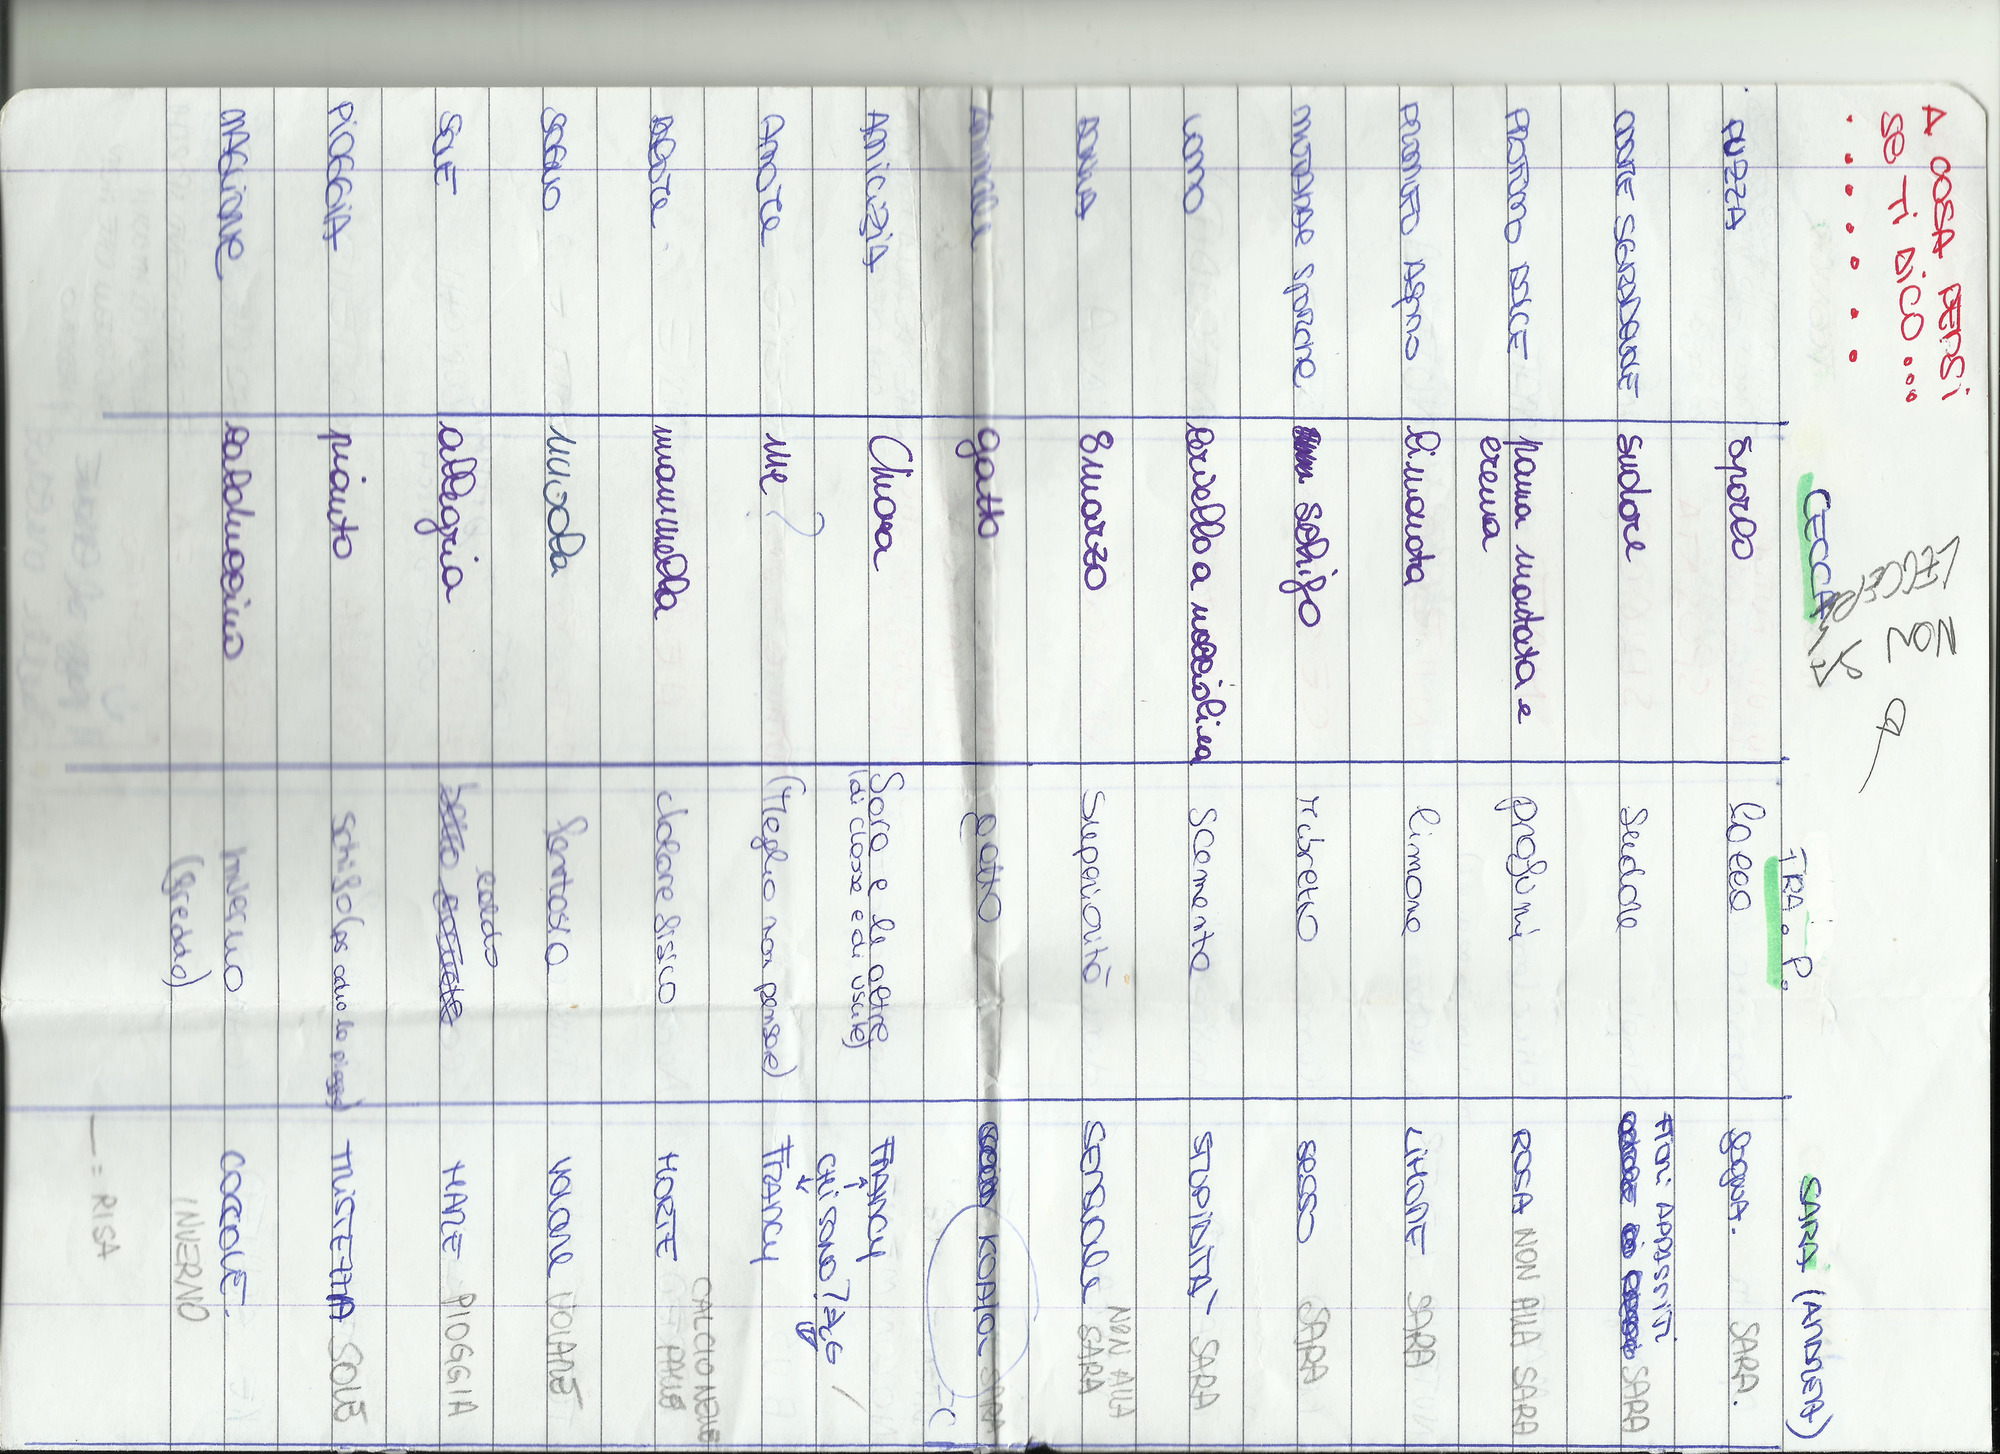 A COSA PENSI
SE TI DICO...
NON
LEGGERE
CECCA TRA. P. SARA (ANDREA)
PUZZA sporco Cacca fogna. SARA.
ODORE SGRADEVOLE sudore Sudore FIORI APPASSITI SARA
PROFUMO DOLCE panna montata e crema profumi ROSA NON ALLA SARA
PROFUMO ASPRO limonata limone LIMONE SARA
MUTANDE SPORCHE schifo SECCO SARA
UOMO cervello a nocciolina Scemenza STUPIDITÀ SARA
DONNA 8 marzo Superiorità SENSUALE NON ALLA SARA
ANIMALE gatto gatto KOALA SARA
AMICIZIA Chiara Sara e le altre (di classe e di uscite) FRANCY
CHI SONO?
AMORE me? (Meglio non pensare) FRANCY
DOLORE mammella dolore fisico MORTE CALCIO NELLE PALLE
SOGNO nuvola fantasia VOLARE VOLARE
SOLE allegria caldo MARE PIOGGIA
PIOGGIA pianto schifo (ps odio la pioggia) TRISTEZZA SOLE
MAGLIONE calduccino inverno (freddo) COCCOLE. INVERNO
— = RISA